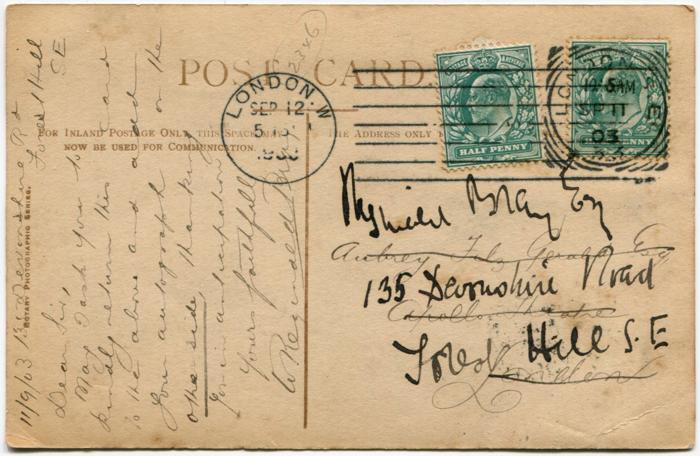 POST CARD
FOR INLAND POSTAGE ONLY THIS SPACE MAY THE ADDRESS ONLY
NOW BE USED FOR COMMUNICATION.
ROTARY PHOTOGRAPHIC SERIES.
LONDON.W
SEP 12
5
HALF PENNY
LONDON S.E
AM
SP 11
03
PENNY
11/9/03 135 Devonshire Rd
Forest Hill
SE
Dear Sir,
May I ask you to
kindly return this card
to the above and add
your autograph on the
other side, thanking
you in anticipation
Yours faithfully
Reginald Bray
Reginald Bray Esq
Aubrey Fitz Gerald Esq
135 Devonshire Road
Apollo Theatre
Forest Hill S.E
London